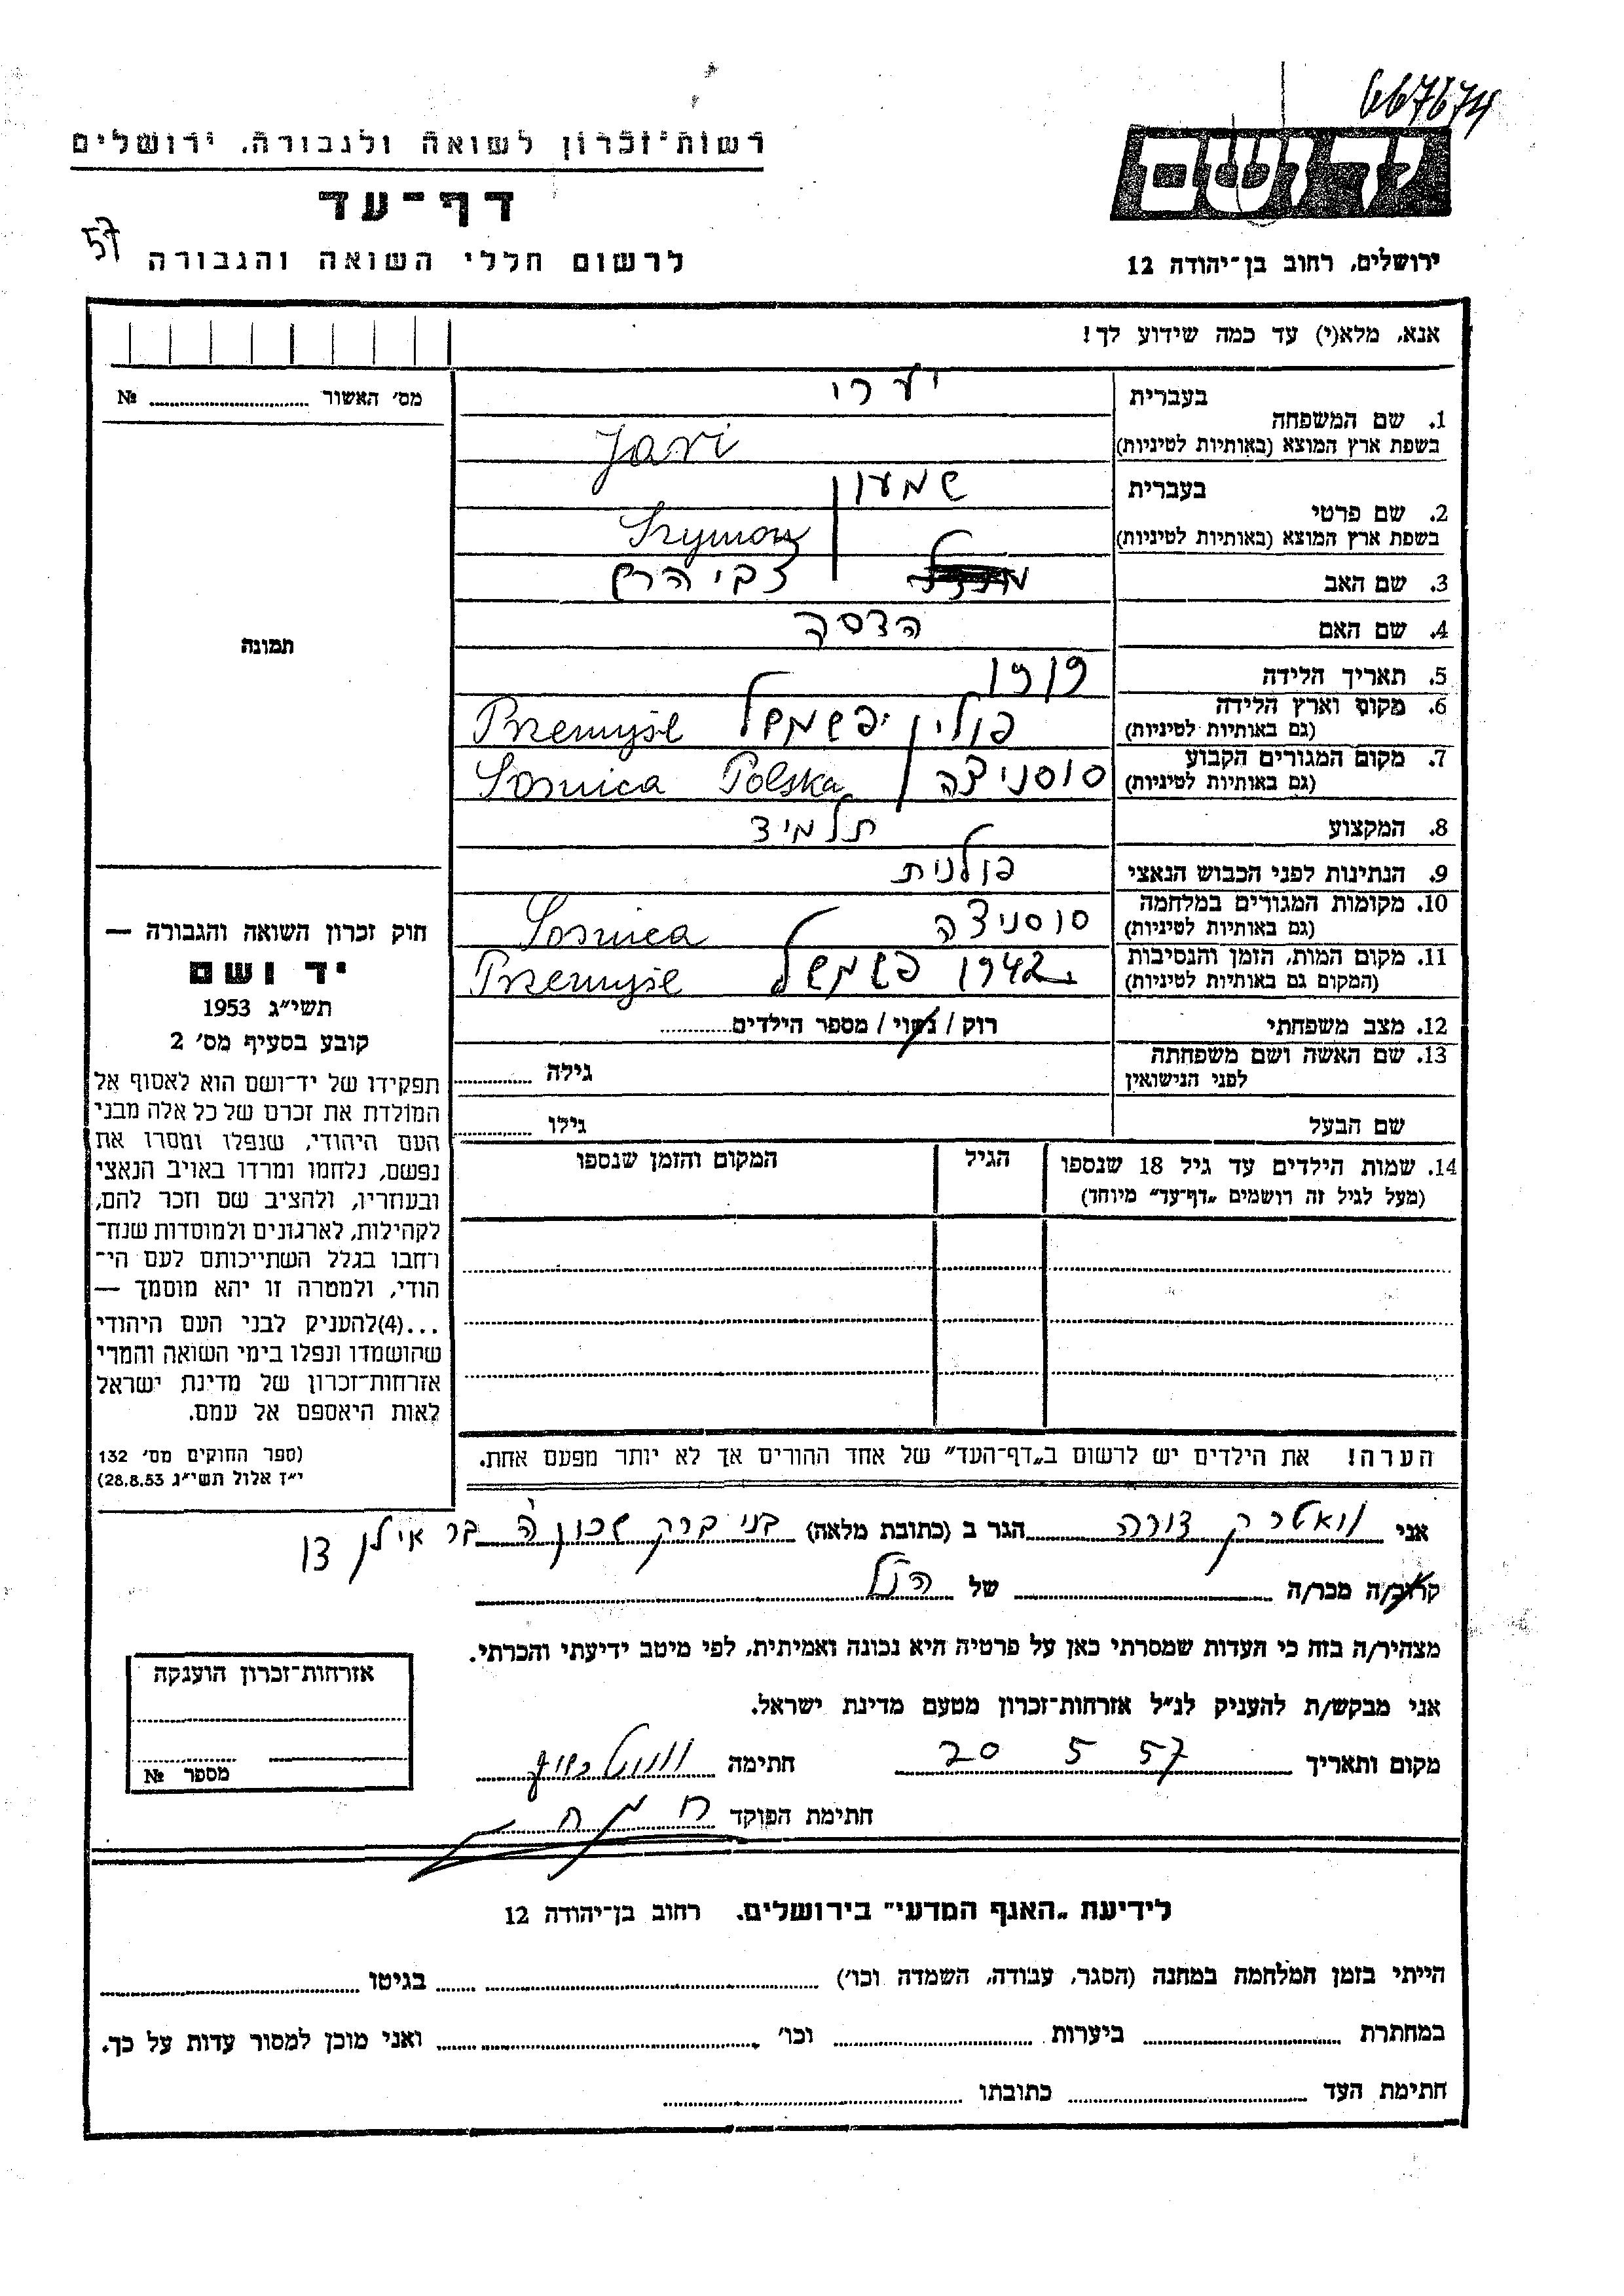 667674
רשות־זכרון לשואה ולגבורה, ירושלים
יד ושם
דף־עד
57
לרשום חללי השואה והגבורה
ירושלים, רחוב בן־יהודה 12
אנא, מלא(י) עד כמה שידוע לך!
מס׳ האשור № 
1. שם המשפחה
בעברית
יערי
בשפת ארץ המוצא (באותיות לטיניות)
Jari
2. שם פרטי
בעברית
שמעון
בשפת ארץ המוצא (באותיות לטיניות)
Szymon
3. שם האב
צבי הרץ
4. שם האם
הדסה
5. תאריך הלידה
1919
6. מקום וארץ הלידה
(גם באותיות לטיניות)
פולין פשמשל Przemyśl
7. מקום המגורים הקבוע
(גם באותיות לטיניות)
סוסניצה Sosnica Polska
8. המקצוע
תלמיד
9. הנתינות לפני הכבוש הנאצי
פולנית
10. מקומות המגורים במלחמה
(גם באותיות לטיניות)
סוסניצה Sosnica
11. מקום המות, הזמן והנסיבות
(המקום גם באותיות לטיניות)
1942 פשמשל Przemyśl
12. מצב משפחתי
רוק / נשוי / מספר הילדים
13. שם האשה ושם משפחתה
לפני הנישואין
גילה
שם הבעל
גילו
14. שמות הילדים עד גיל 18 שנספו
(מעל לגיל זה רושמים „דף־עד״ מיוחד)
הגיל
המקום והזמן שנספו
הערה! את הילדים יש לרשום ב„דף־העד״ של אחד ההורים אך לא יותר מפעם אחת.
תמונה
חוק זכרון השואה והגבורה —
יד ושם
תשי״ג 1953
קובע בסעיף מס׳ 2
תפקידו של יד־ושם הוא לאסוף אל
המולדת את זכרם של כל אלה מבני
העם היהודי, שנפלו ומסרו את
נפשם, נלחמו ומרדו באויב הנאצי
ובעוזריו, ולהציב שם וזכר להם,
לקהילות, לארגונים ולמוסדות שנח־
רחבו בגלל השתייכותם לעם הי־
הודי, ולמטרה זו יהא מוסמך —
...(4)להעניק לבני העם היהודי
שהושמדו ונפלו בימי השואה והמרי
אזרחות־זכרון של מדינת ישראל
לאות היאספם אל עמם.
(ספר החוקים מס׳ 132
י״ז אלול תשי״ג 28.8.53)
אני דורה הגר ב (כתובת מלאה) בני ברק שכון ה בר אילן
קרוב/ה מכר/ה של הנ״ל
מצהיר/ה בזה כי העדות שמסרתי כאן על פרטיה היא נכונה ואמיתית, לפי מיטב ידיעתי והכרתי.
אני מבקש/ת להעניק לנ״ל אזרחות־זכרון מטעם מדינת ישראל.
מקום ותאריך 20 5 57 חתימה
חתימת הפוקד
אזרחות־זכרון הוענקה
מספר №
לידיעת „האגף המדעי״ בירושלים. רחוב בן־יהודה 12
הייתי בזמן המלחמה במחנה (הסגר, עבודה, השמדה וכו׳) בגיטו
במחתרת ביערות וכו׳ ואני מוכן למסור עדות על כך.
חתימת העד כתובתו